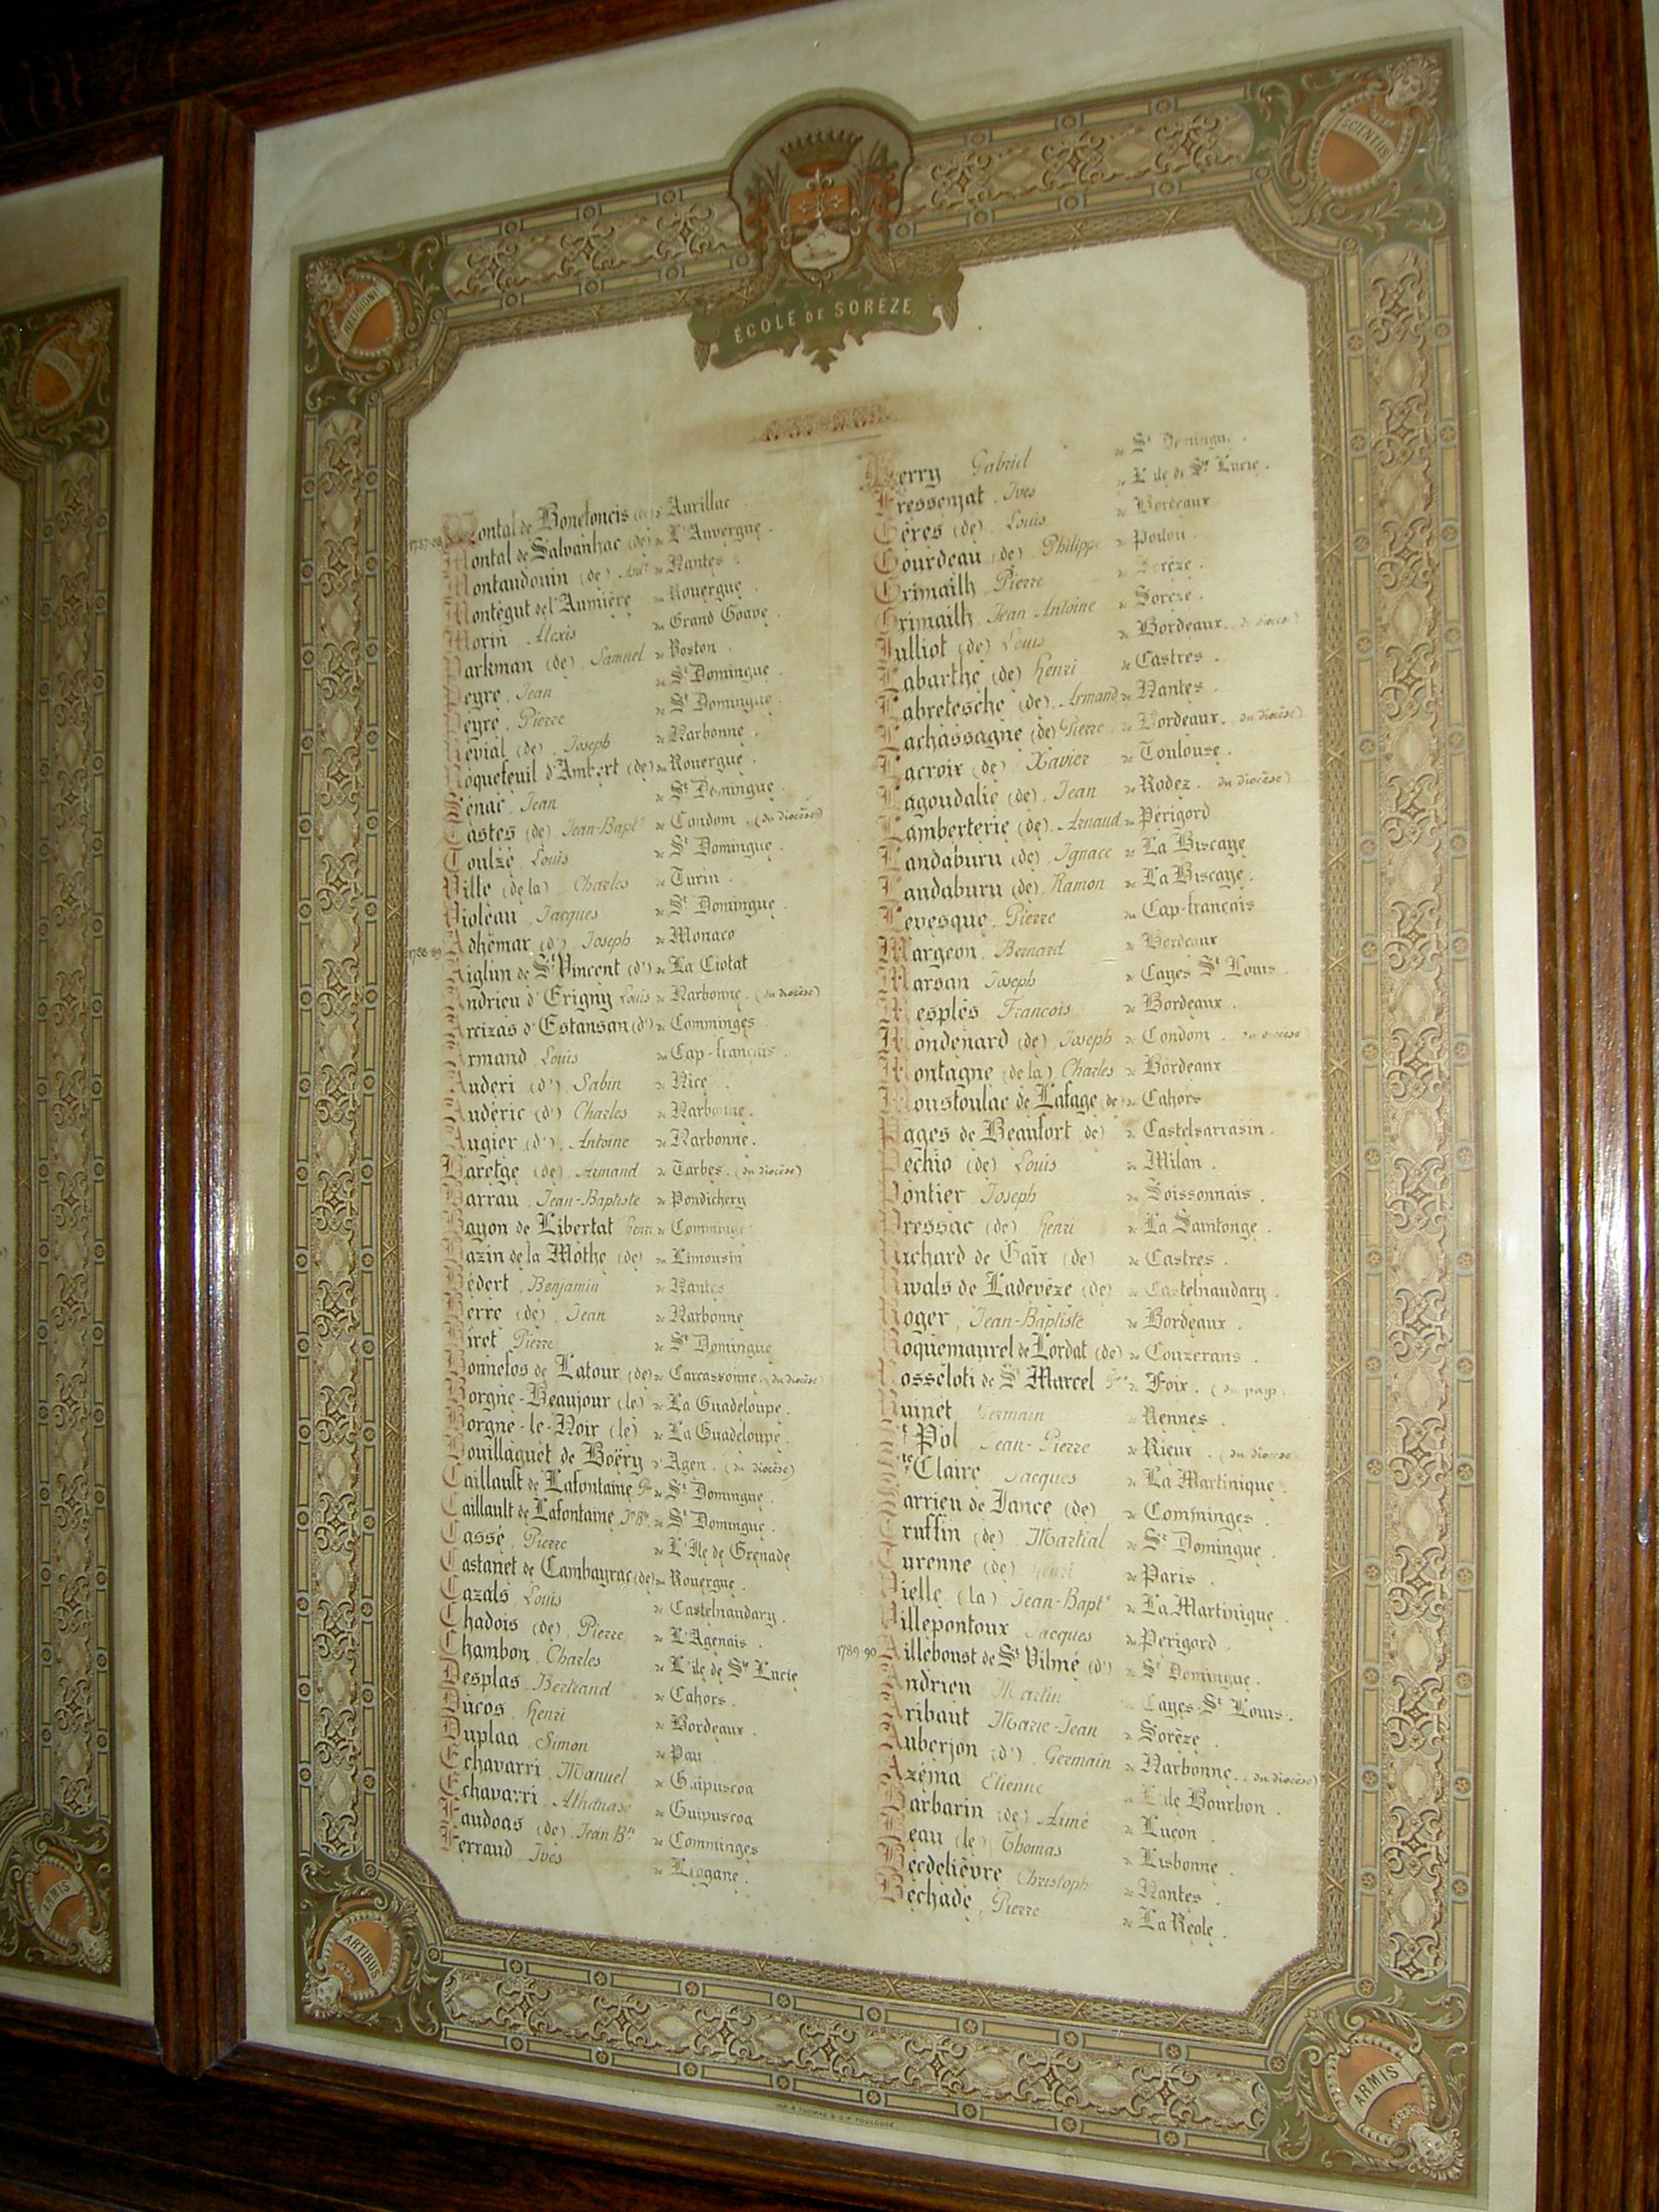 RELIGIONI
SCIENTIIS
ÉCOLE DE SORÈZE
1787-88 Montal de Bonefoncis (de) d'Aurillac
Montal de Salvanhac (de) de L'Auvergne.
Montaudouin (de) de Nantes.
Montégut de l'Aumière du Rouergue.
Morin Alexis du Grand Goave.
Parkman (de) Samuel de Boston.
Peyre, Jean de St Domingue.
Peyre, Pierre de St Domingue.
Révial (de) Joseph de Narbonne.
Roquefeuil d'Ambert (de) du Rouergue.
Sénac Jean de St Domingue.
Tastes (de) Jean-Bapte de Condom. (du diocèse)
Toulzé, Louis de St Domingue.
Ville (de la) Charles de Turin.
Violeau, Jacques de St Domingue.
1788-89 Adhémar (d') Joseph de Monaco
Aiglun de St Vincent (d') de La Ciotat
Andrieu d'Erigny Louis de Narbonne. (du diocèse)
Arcizas d'Estansan (d') de Comminges
Armand, Louis du Cap-français.
Auderi (d'), Sabin de Nice.
Audéric (d') Charles de Narbonne.
Augier (d'), Antoine de Narbonne.
Baretge (de) Armand de Tarbes. (du diocèse)
Barrau, Jean-Baptiste de Pondichery
Bayon de Libertat Henri de Comminge
Bazin de la Mothe (de) du Limousin
Bédert, Benjamin de Nantes
Berre (de), Jean de Narbonne
Biret Pierre de St Domingue
Bonnefos de Latour (de) de Carcassonne. (du diocèse)
Borgne-Beaujour (le) de La Guadeloupe.
Borgne-le-Noir (le) de La Guadeloupe.
Bouillaguet de Boëry d'Agen. (du diocèse)
Caillault de Lafontaine de St Domingue.
Caillault de Lafontaine de St Domingue.
Cassé, Pierre de L'Ile de Grenade
Castanet de Cambayrac (de) du Rouergue.
Cazals Louis de Castelnaudary.
Chadois (de), Pierre de L'Agenais.
Chambon, Charles de L'ile de Ste Lucie
Desplas Bertrand de Cahors.
Ducos, Henri de Bordeaux.
Duplaa, Simon de Pau
Echavarri Manuel de Guipuscoa
Echavarri Athanase de Guipuscoa
Faudoas (de), Jean Bte de Comminges
Ferraud Ives de Léogane.
Ferry Gabriel de St Domingue.
Fressenjat, Ives de L'ile de Ste Lucie.
Gères (de). Louis de Bordeaux
Gourdeau (de) Philippe de Poitou.
Grimailh Pierre de Sorèze.
Grimailh Jean Antoine de Sorèze.
Julliot (de) Louis de Bordeaux. (du diocèse)
Labarthe (de) Henri de Castres.
Labretesche (de). Armand de Nantes.
Lachassagne (de) Pierre de Bordeaux. (du diocèse)
Lacroix (de) Xavier de Toulouse.
Lagoudalie (de). Jean de Rodez. (du diocèse)
Lamberterie (de). Arnaud du Périgord
Landaburu (de) Ignace de La Biscaye
Landaburu (de) Ramon de La Biscaye.
Levesque Pierre du Cap-français
Margeon Bernard de Bordeaux
Marsan Joseph de Cayes St Louis
Mesplès François de Bordeaux.
Mondenard (de) Joseph de Condom. (du diocèse)
Montagne (de la) Charles de Bordeaux
Moustoulac de Lafage (de) de Cahors
Pages de Beaufort (de) de Castelsarrasin.
Pechio (de) Louis de Milan.
Pontier Joseph du Soissonnais.
Pressac (de) Henri de La Saintonge.
Richard de Gaïx (de) de Castres.
Rivals de Ladevèze (de) de Castelnaudary.
Roger, Jean-Baptiste de Bordeaux.
Roquemaurel de Lordat (de) de Couzerans.
Rosseloti de St Marcel de Foix. (du pays)
Ruinet Germain de Rennes.
St Pol Jean-Pierre de Rieux. (du diocèse)
Ste Claire Jacques de La Martinique.
Sarrieu de Jance (de) de Comminges.
Truffin (de) Martial de St Domingue.
Turenne (de) Henri de Paris.
Vielle (la) Jean-Bapte de La Martinique.
Villepontoux Jacques du Perigord.
1789-90 Ailleboust de St Vilmé (d') de St Domingue.
Andrieu Martin de Cayes-St Louis.
Aribaut Marie-Jean de Sorèze.
Auberjon (d') Germain de Narbonne. (du diocèse)
Azéma Etienne de L'ile Bourbon.
Barbarin (de) Aimé de Luçon.
Beau (le) Thomas de Lisbonne.
Becdelièvre Christoph de Nantes.
Béchade, Pierre de La Réole.
ARTIBUS
ARMIS
ARMIS